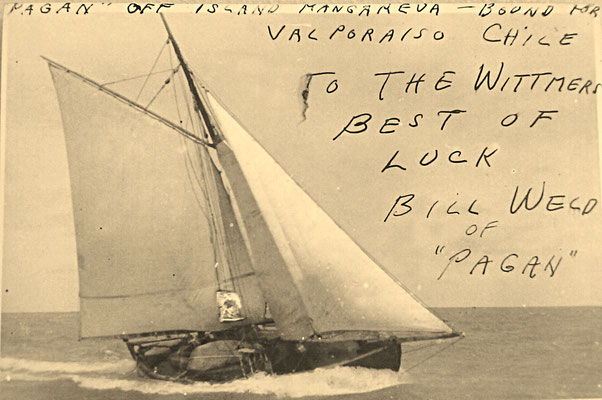 PAGAN" OFF ISLAND MANGAREVA — BOUND FOR
VALPORAISO CHILE
TO THE WITTMERS
BEST OF
LUCK
BILL WELD
OF
"PAGAN"